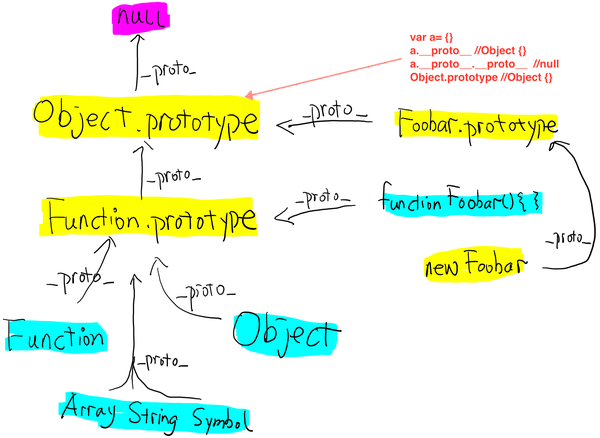 null
var a= {}
a.__proto__ //Object {}
a.__proto__.__proto__ //null
Object.prototype //Object {}
_proto_
Object.prototype
_proto_
Foobar.prototype
_proto_
Function.prototype
_proto_
function Foobar(){ }
_proto_
new Foobar
_proto_
_proto_
Function
Object
_proto_
Array String Symbol